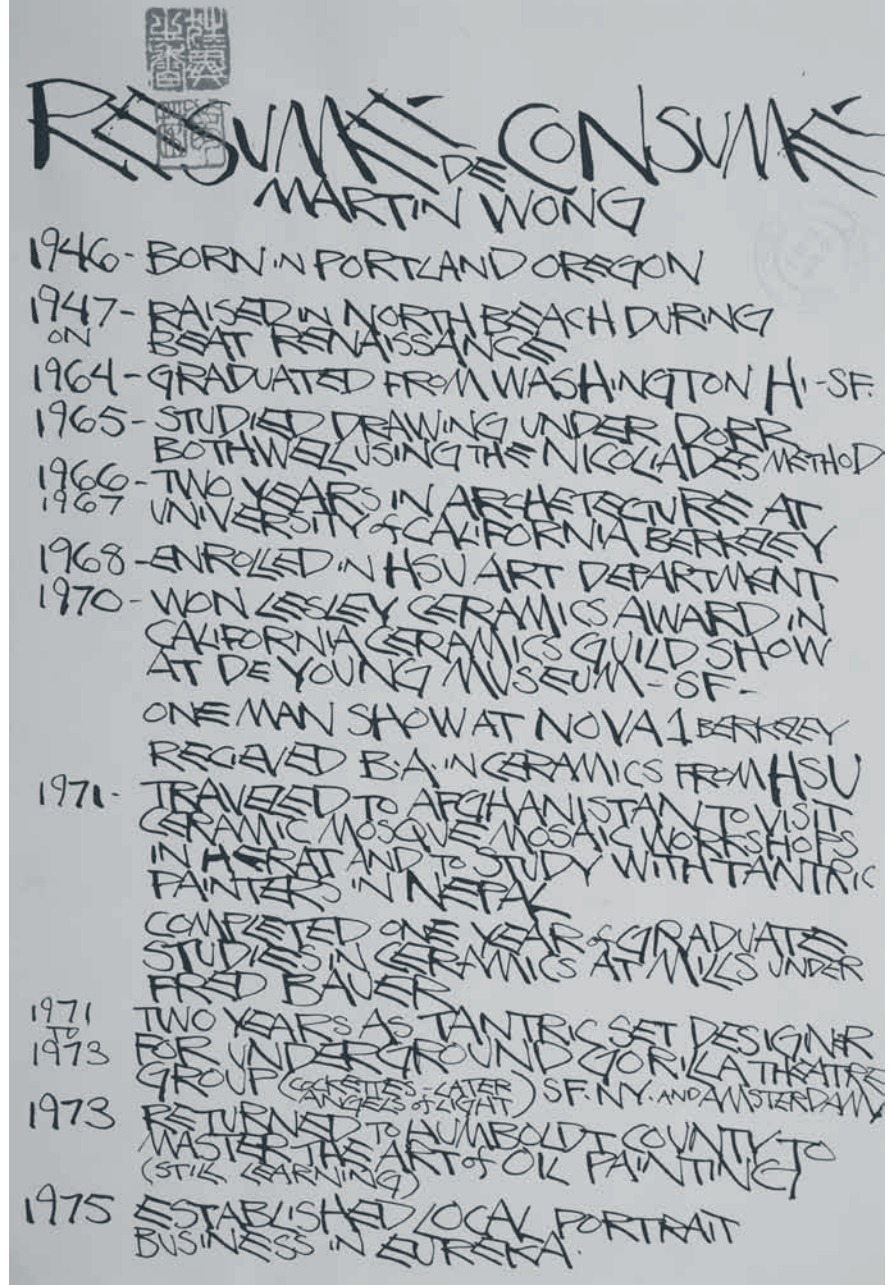 RESUMÉ DE CONSUMÉ
MARTIN WONG
1946 - BORN IN PORTLAND OREGON
1947 - RAISED IN NORTH BEACH DURING
ON BEAT RENAISSANCE
1964 - GRADUATED FROM WASHINGTON HI - SF.
1965 - STUDIED DRAWING UNDER DORR
BOTHWEL USING THE NICOLIADES METHOD
1966 - TWO YEARS IN ARCHETECTURE AT
1967 UNIVERSITY of CALIFORNIA BERKELEY
1968 - ENROLLED IN HSU ART DEPARTMENT
1970 - WON LESLEY CERAMICS AWARD IN
CALIFORNIA CERAMICS GUILD SHOW
AT DE YOUNG MUSEUM - SF -
ONE MAN SHOW AT NOVA 1 BERKELEY
RECIEVED B.A. IN CERAMICS FROM HSU
1971 - TRAVELED TO AFGHANISTAN TO VISIT
CERAMIC MOSQUE MOSAIC WORKSHOPS
IN HERAT AND TO STUDY WITH TANTRIC
PAINTERS IN NEPAL
COMPLETED ONE YEAR of GRADUATE
STUDIES IN CERAMICS AT MILLS UNDER
FRED BAUER
1971 TWO YEARS AS TANTRIC SET DESIGNER
TO
1973 FOR UNDERGROUND GORILLA THEATRE
GROUP (COCKETTES - LATER
ANGELS of LIGHT) SF. NY. AND AMSTERDAM
1973 RETURNED TO HUMBOLDT COUNTY TO
MASTER THE ART of OIL PAINTING
(STILL LEARNING)
1975 ESTABLISHED LOCAL PORTRAIT
BUSINESS IN EUREKA.